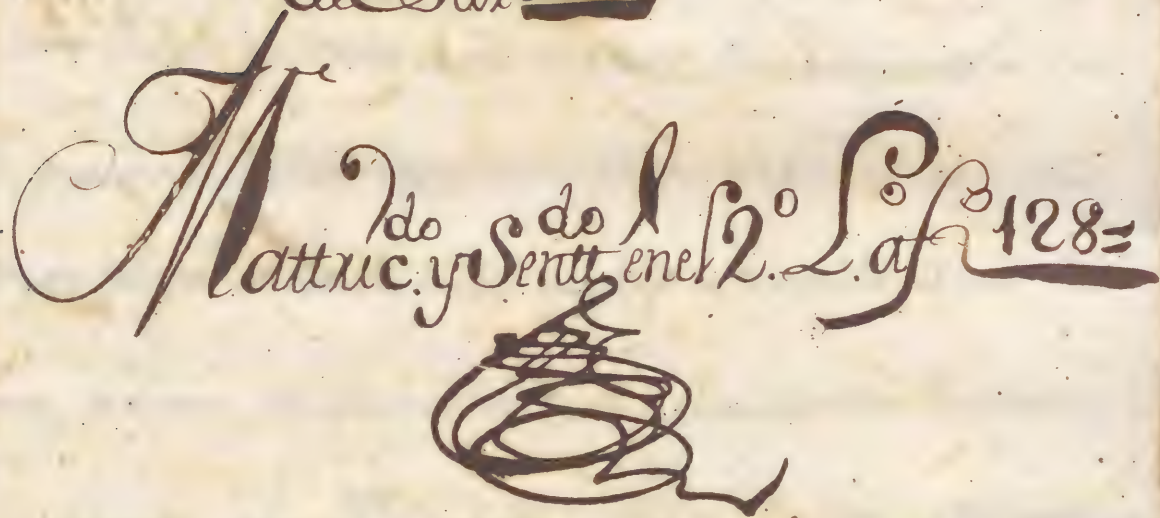 Mattruc.do y Sentt.do en el 2.º L.º a f.º 128=